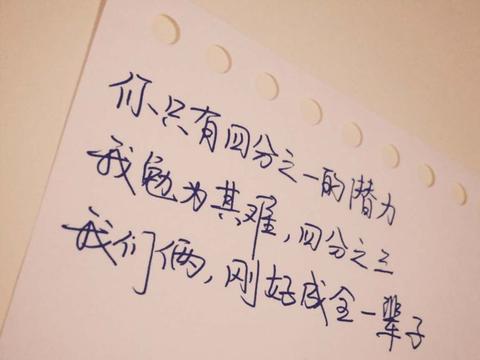 你只有四分之一的潜力
我勉为其难，四分之三
我们俩，刚好成全一辈子